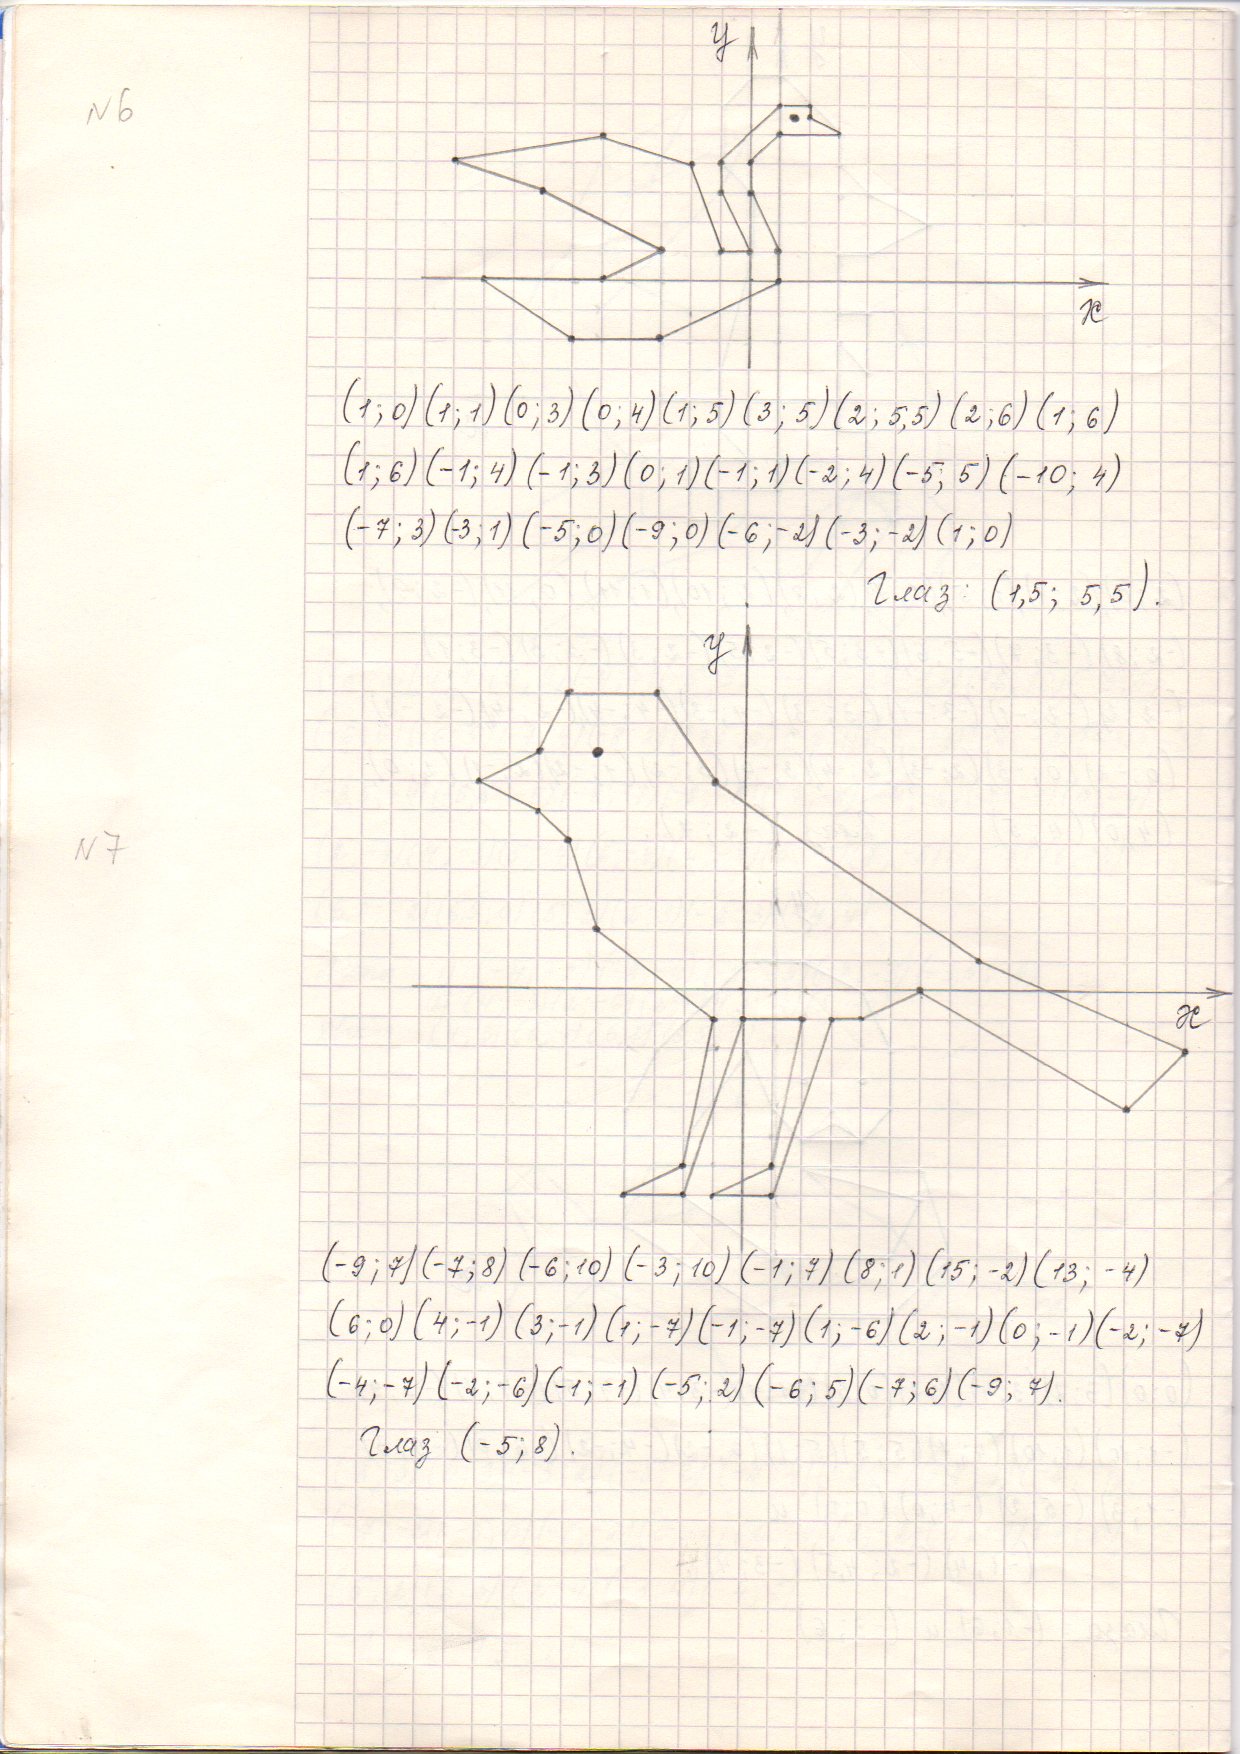 N6
y
x
(1; 0) (1; 1) (0; 3) (0; 4) (1; 5) (3; 5) (2; 5,5) (2; 6) (1; 6)
(1; 6) (-1; 4) (-1; 3) (0; 1) (-1; 1) (-2; 4) (-5; 5) (-10; 4)
(-7; 3) (-3; 1) (-5; 0) (-9; 0) (-6; -2) (-3; -2) (1; 0)
Глаз: (1,5; 5,5).
y
N7
x
(-9; 7) (-7; 8) (-6; 10) (-3; 10) (-1; 7) (8; 1) (15; -2) (13; -4)
(6; 0) (4; -1) (3; -1) (1; -7) (-1; -7) (1; -6) (2; -1) (0; -1) (-2; -7)
(-4; -7) (-2; -6) (-1; -1) (-5; 2) (-6; 5) (-7; 6) (-9; 7).
Глаз (-5; 8).